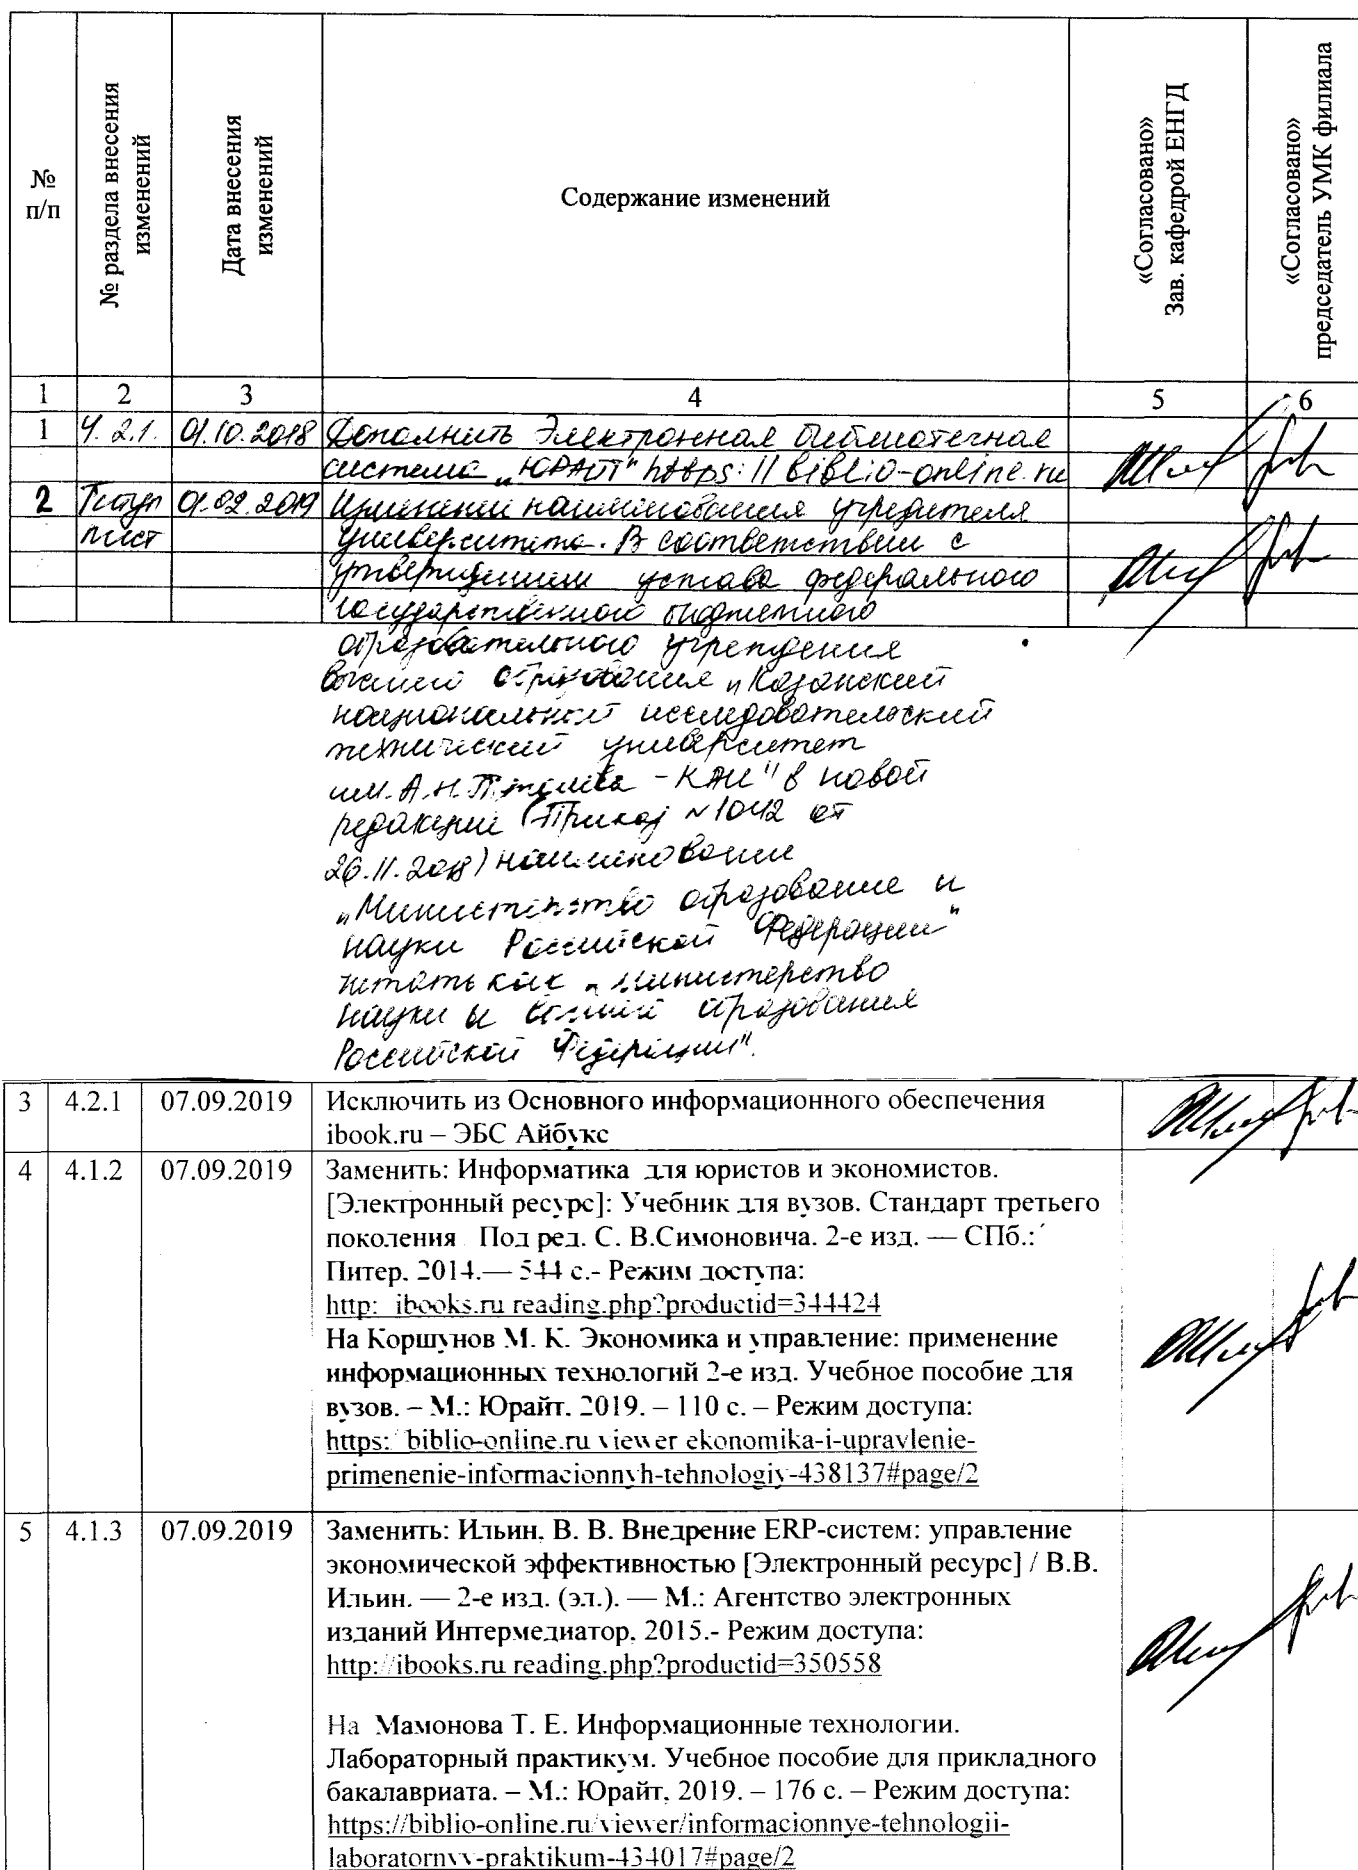 № п/п
№ раздела внесения изменений
Дата внесения изменений
Содержание изменений
«Согласовано» Зав. кафедрой ЕНГД
«Согласовано» председатель УМК филиала
1 2 3 4 5 6
1 4.2.1. 01.10.2018 Дополнить Электронная библиотечная
система „ЮРАЙТ" https://biblio-online.ru
2 Титул 01.02.2019 наименования учредителя
лист университета. В соответствии с
утверждением устава федерального
государственного бюджетного
образовательного учреждения
высшего образования „Казанский
национальный исследовательский
технический университет
им. А.Н. Туполева - КАИ" в новой
редакции (Приказ №1042 от
26.11.2018) наименование
„Министерство образование и
науки Российской Федерации"
читать как „Министерство
науки и высшего образования
Российской Федерации".
3 4.2.1 07.09.2019 Исключить из Основного информационного обеспечения
ibook.ru – ЭБС Айбукс
4 4.1.2 07.09.2019 Заменить: Информатика для юристов и экономистов.
[Электронный ресурс]: Учебник для вузов. Стандарт третьего
поколения Под ред. С. В.Симоновича. 2-е изд. — СПб.:
Питер, 2014.— 544 с.- Режим доступа:
http: ibooks.ru reading.php?productid=344424
На Коршунов М. К. Экономика и управление: применение
информационных технологий 2-е изд. Учебное пособие для
вузов. – М.: Юрайт, 2019. – 110 с. – Режим доступа:
https: biblio-online.ru viewer ekonomika-i-upravlenie-
primenenie-informacionnyh-tehnologiy-438137#page/2
5 4.1.3 07.09.2019 Заменить: Ильин, В. В. Внедрение ERP-систем: управление
экономической эффективностью [Электронный ресурс] / В.В.
Ильин. — 2-е изд. (эл.). — М.: Агентство электронных
изданий Интермедиатор, 2015.- Режим доступа:
http://ibooks.ru reading.php?productid=350558
На Мамонова Т. Е. Информационные технологии.
Лабораторный практикум. Учебное пособие для прикладного
бакалавриата. – М.: Юрайт, 2019. – 176 с. – Режим доступа:
https://biblio-online.ru/viewer/informacionnye-tehnologii-
laboratornyy-praktikum-434017#page/2